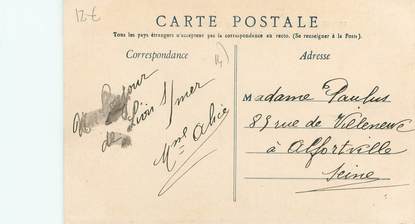 12 €
CARTE POSTALE
Tous les pays étrangers n'acceptent pas la correspondance au recto. (Se renseigner à la Poste).
Correspondance
Adresse
Bonjour
de Lion s/mer
Mme Alice
Madame Paulus
85 rue de Villeneuve
à Alfortville
Seine